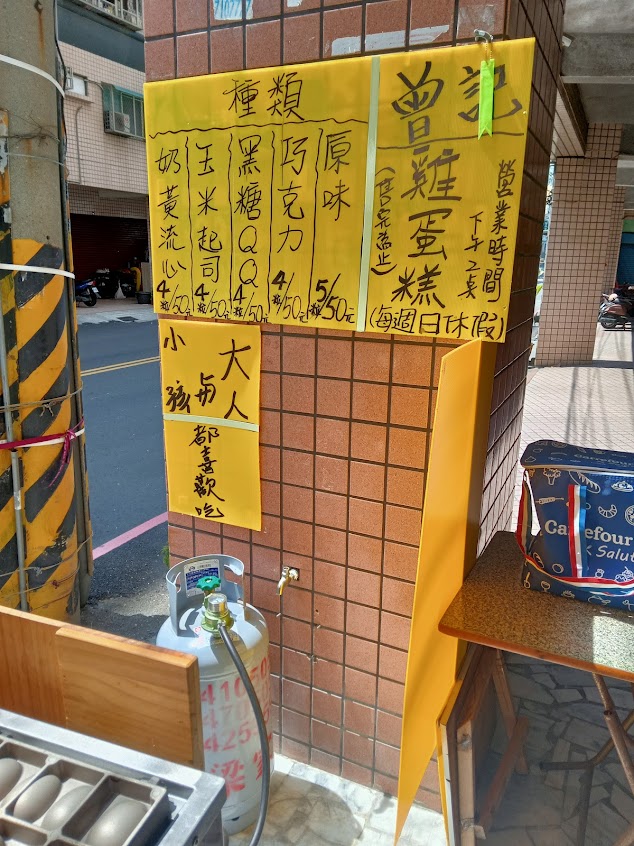 曾記
雞蛋糕
(售完為止)
營業時間
下午2點
(每週日休假)
種類
原味 5粒/50元
巧克力 4粒/50元
黑糖QQ 4粒/50元
玉米起司 4粒/50元
奶黃流心 4粒/50元
大人
與
小孩
都喜歡吃
Carrefour
Salut